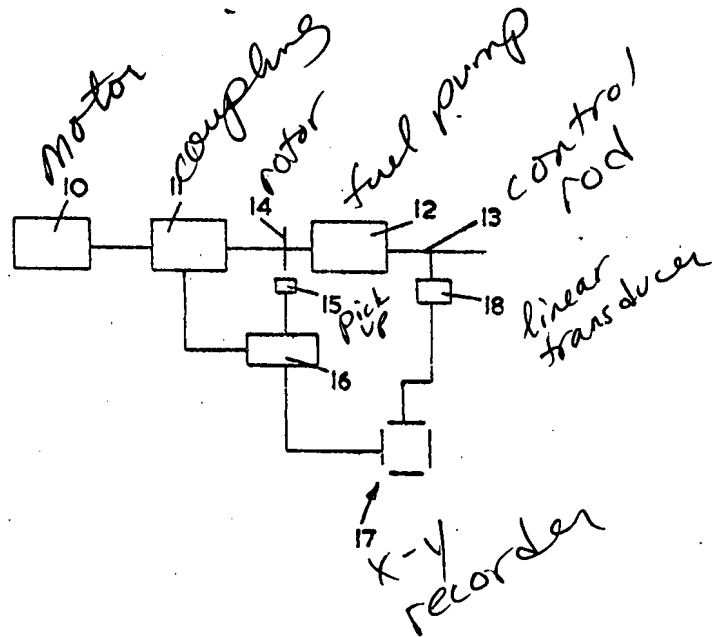 Motor
coupling
rotor
fuel pump
control
rod
10
11
14
12
13
15
pick
up
18
linear
transducer
16
17
x-y
recorder